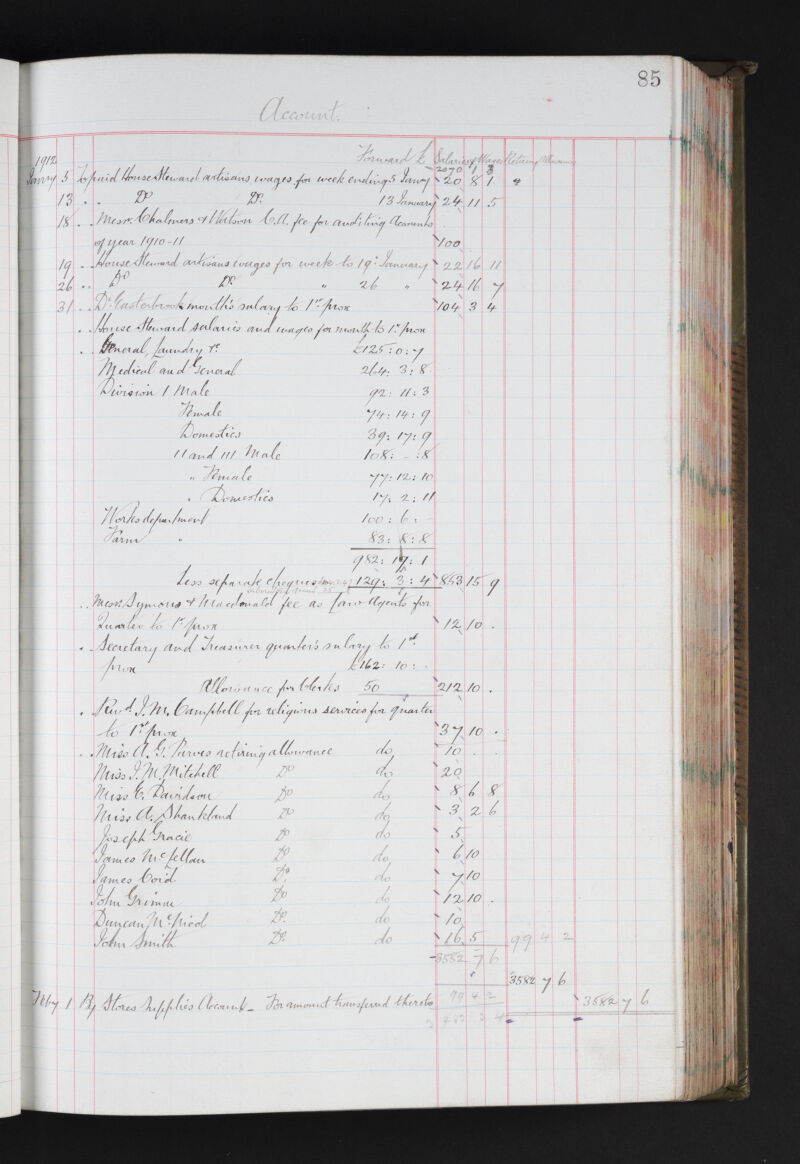 85
Account.
Forward £ Salaries & Wages Retiring Allowances
1912 2070 1 3
Janry 5 To paid House Steward artisans wages for week ending 5 Janry 20 8 1
13 " " Do Do 13 January 24 11 5
18 " Messrs. Chalmers & Watson C.A. fee for auditing Accounts
of year 1910-11 100
19 " House Steward artisans wages for week to 19th January 22 16 11
26 " " Do Do " 26 " 24 16 7
31 " Dr Easterbrook month's salary to 1st prox 104 3 4
" House Steward salaries and wages for month to 1st prox
" General, Laundry &c £125 : 0 : 7
Medical and General 264 : 3 : 8
Division I Male 92 : 11 : 3
Female 74 : 14 : 9
Domestics 39 : 17 : 9
II and III Male 108 : - : 8
" Female 77 : 12 : 10
" Domestics 17 : 2 : 11
Works department 100 : 6 : -
Farm " 83 : 8 : 8
982 : 19 : 1
Less separate cheques 129 : 3 : 4 853 15 9
" Messrs. Symons & Macdonald fee as Law Agents for
Quarter to 1st prox 12 10 .
" Secretary and Treasurer quarter's salary to 1st
prox £162 : 10 : -
Allowance for Clerks 50 212 10 .
" Revd. J. M. Campbell for religious services for quarter
to 1st prox 37 10 .
" Miss A. G. Purves retiring allowance do 10 . .
Miss J. M. Mitchell Do do 20
Miss E. Davidson Do do 8 6 8
Miss A. Shankland Do do 3 2 6
Joseph Gracie Do do 5
James McLellan Do do 6 10
James Coid Do do 7 10
John Grimm Do do 12 10 .
Duncan McNicol Do do 10
John Smith Do do 16 5 99 4 2
3582 7 6
3582 7 6
Feby 1 By Stores Supplies Account - For amount transferred thereto 99 4 2 3582 7 6
3 483 3 4